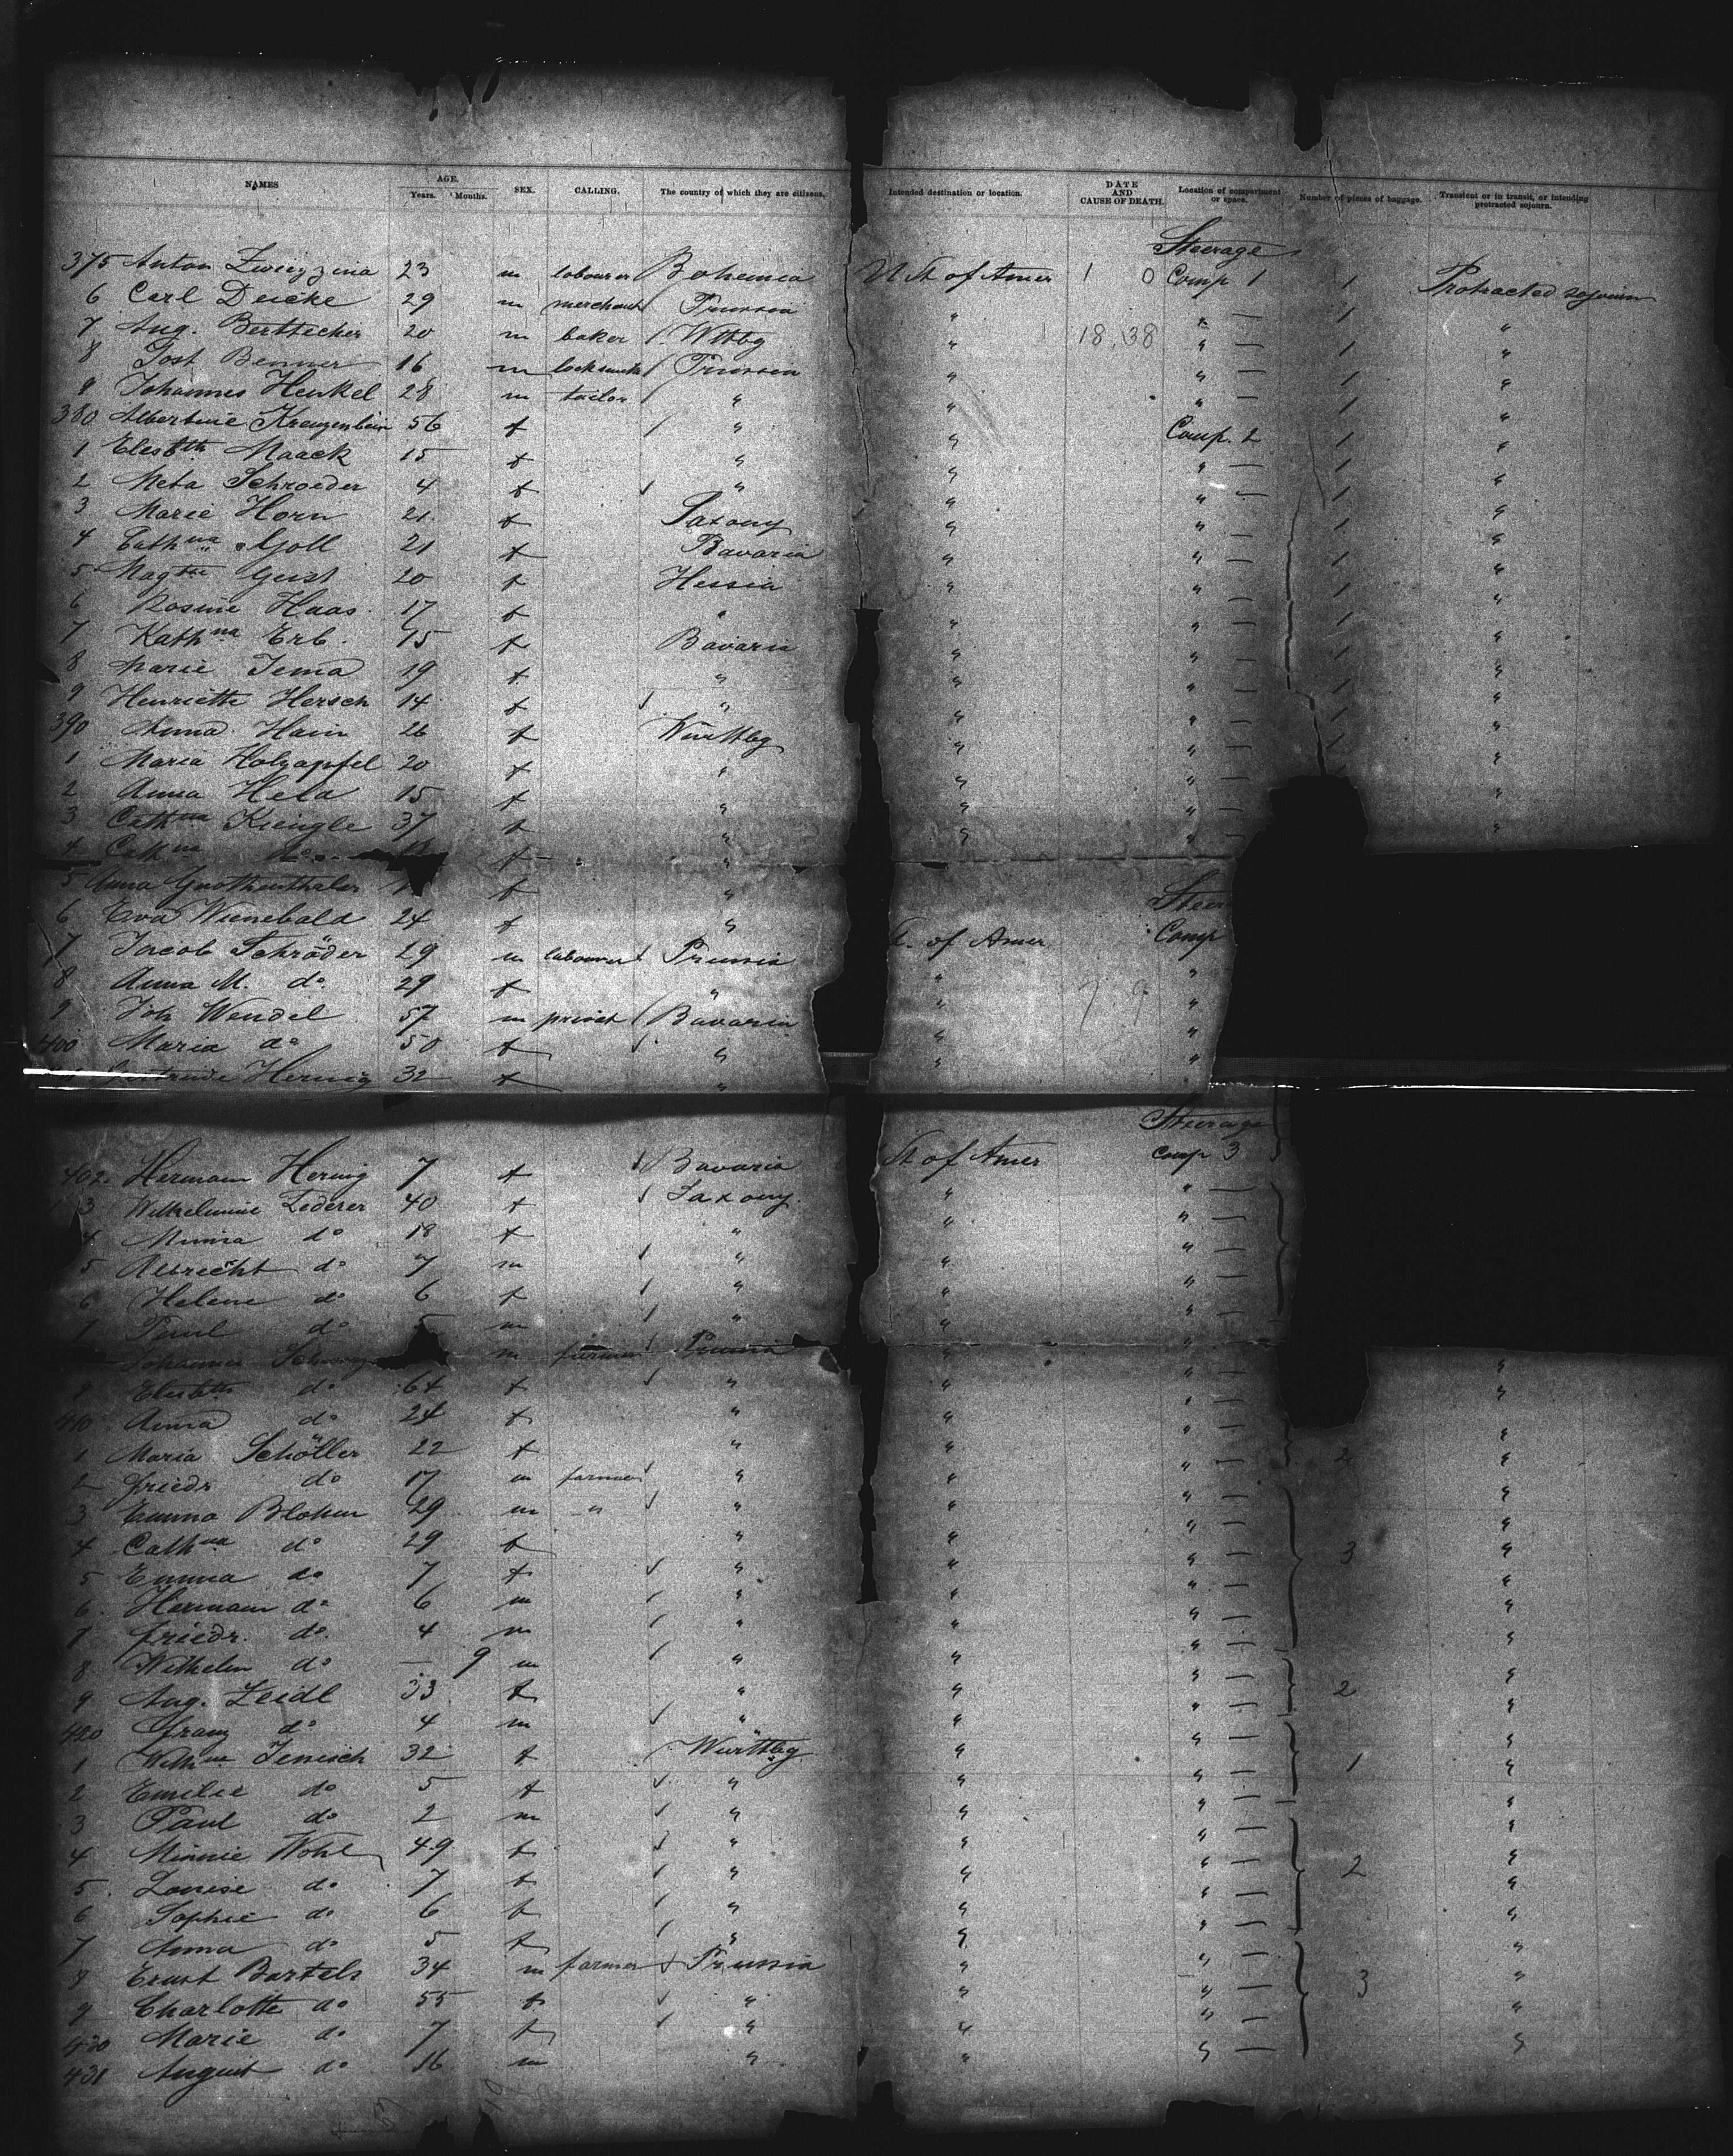 NAMES AGE. Years. Months. SEX. CALLING. The country of which they are citizens. Intended destination or location. DATE AND CAUSE OF DEATH. Location of compartment or space. Number of pieces of baggage. Transient or in transit, or intending protracted sojourn.
Steerage
375 Anton 23 m labourer Bohemia U St of Amer 1 0 Comp 1 1 Protracted sojourn
6 Carl Deicke 29 m merchant Prussia " " — 1 "
7 Aug. Bertscher 20 m baker Wttbg " 18,38 " — 1 "
8 Jost Benner 16 m locksmith Prussia " " — 1 "
9 Johannes Henkel 28 m tailor " " " — 1 "
380 Albertine 56 f " " Comp. 2 1 "
1 Elisbth Maack 15 f " " " — 1 "
2 Meta Schroeder 4 f " " " — 1 "
3 Marie Horn 21 f Saxony " " — 1 "
4 Cathna Goll 21 f Bavaria " " — 1 "
5 Geist 20 f Hessia " " — 1 "
6 Rosine Haas 17 f " " " — 1 "
7 Kathna Erb. 15 f Bavaria " " — 1 "
8 Marie Jema 19 f " " " — 1 "
9 Henriette Hersch 14 f " " " — 1 "
390 Anna Hain 26 f Württbg " " — 1 "
1 Maria Holzapfel 20 f " " " — 1 "
2 Anna Held 15 f " " " "
3 Cathna Kiengle 37 f " " " "
4 Cathna do f "
5 Anna f " Steer
6 Eva Wienebald 24 f "
7 Jacob Schröder 29 m labourer Prussia of Amer Comp
8 Anna M. do 29 f " " "
9 Joh Wendel 57 m privat Bavaria " "
400 Maria do 50 f " " "
Gertrude Herwig 32 f " " "
Steerage
402. Hermann Herwig 7 f Bavaria St of Amer Comp 3
3 Wilhelmine Lederer 40 f Saxony " " —
4 Minna do 18 f " " " —
5 Albrecht do 7 m " " " —
6 Helene do 6 f " " " —
7 Paul do 5 m " " " —
Johannes m farmer Prussia " " "
9 Elisbth do 64 f " " " — "
410 Anna do 24 f " " " — "
1 Maria Schöller 22 f " " " — 2 "
2 Friedr do 17 m farmer " " " — "
3 Emma Blohm 29 m " " " " — "
4 Cathna do 29 f " " " — 3 "
5 Emma do 7 f " " " — "
6 Hermann do 6 m " " " — "
7 Friedr. do 4 m " " " — "
8 Wilhelm do — 9 m " " " — "
9 Aug. Zeidl 33 f " " " — 2 "
420 Franz do 4 m " " " — "
1 Jenisch 32 f Württbg " " — "
2 Emilie do 5 f " " " — 1 "
3 Paul do 2 m " " " — "
4 Minnie Wohl 49 f " " " — "
5 Louise do 7 f " " " — 2 "
6 Sophie do 6 f " " " — "
7 Anna do 5 f " " " — "
8 Ernst Bartels 34 m farmer Prussia " " — "
9 Charlotte do 55 f " " " — 3 "
430 Marie do 7 f " " " — "
431 August do 16 m " " " — "